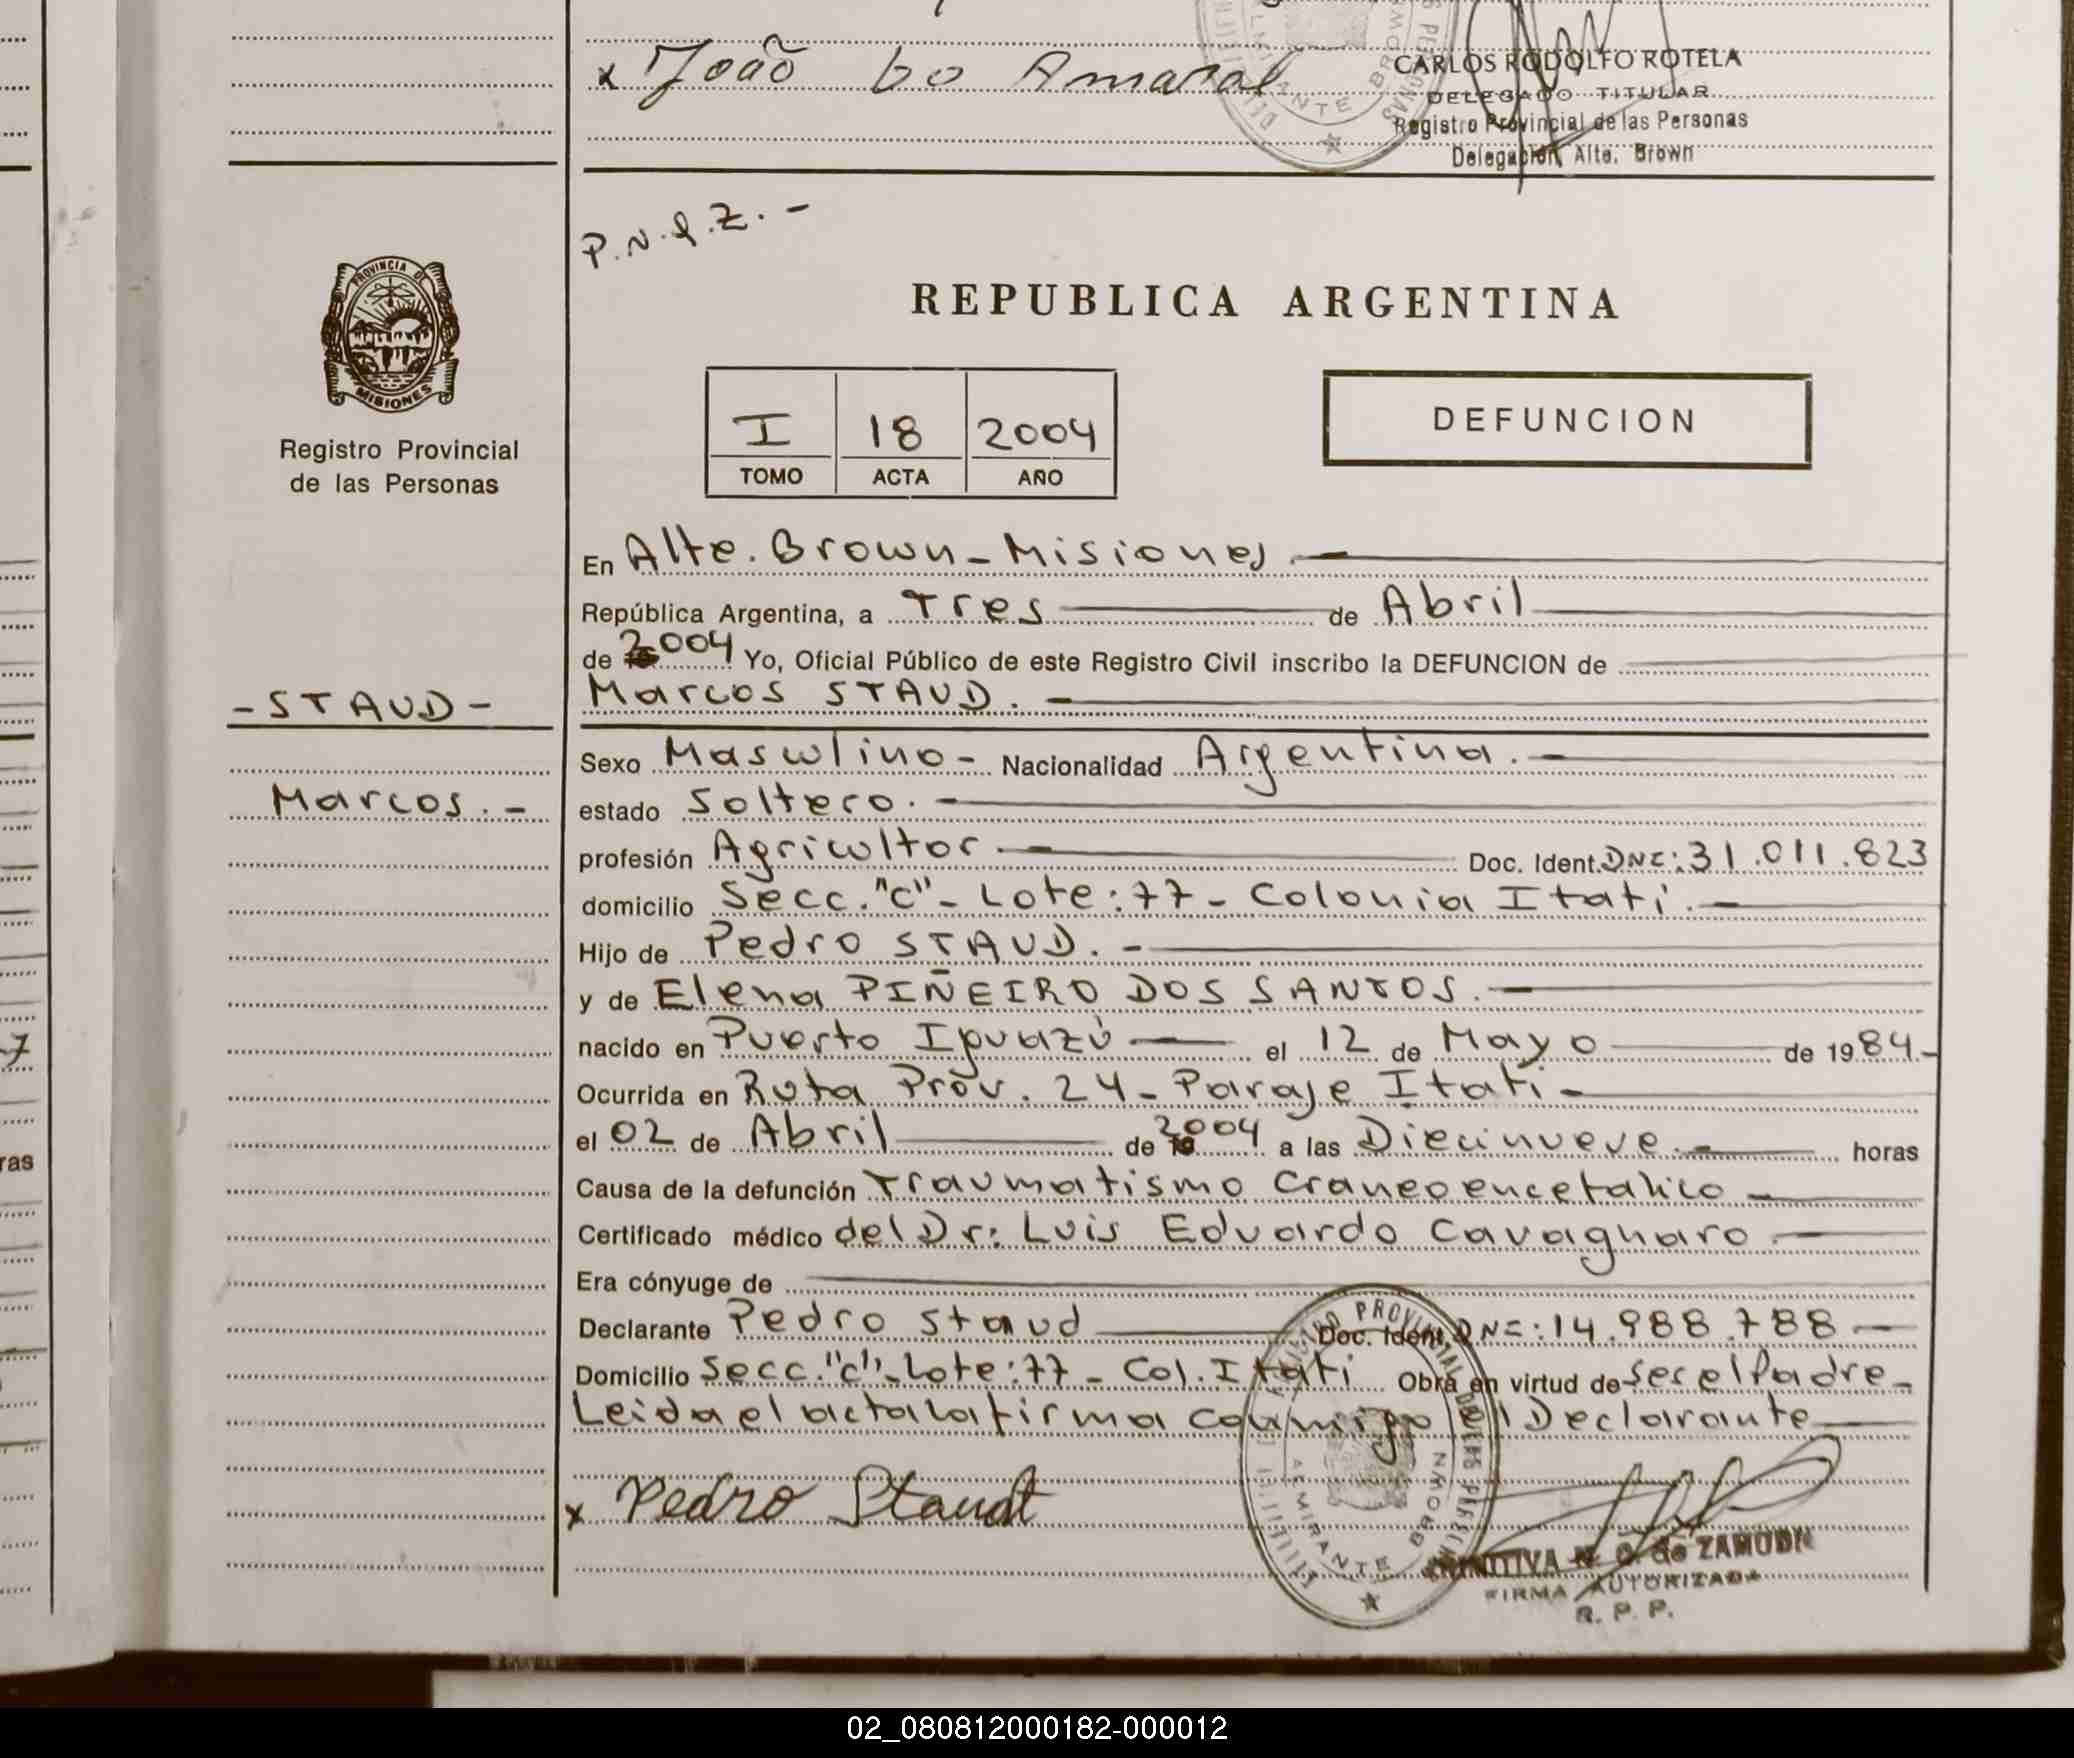 x João do Amaral
CARLOS RODOLFO ROTELA
DELEGADO TITULAR
Registro Provincial de las Personas
Delegación, Alte. Brown
REPUBLICA ARGENTINA
PROVINCIA DE
MISIONES
Registro Provincial
de las Personas
I 18 2004
TOMO ACTA AÑO
DEFUNCION
En Alte. Brown - Misiones. -
República Argentina, a Tres de Abril
de 2004 Yo, Oficial Público de este Registro Civil inscribo la DEFUNCION de
- STAUD - Marcos STAUD. -
Sexo Masculino - Nacionalidad Argentina. -
Marcos. - estado Soltero. -
profesión Agricultor - Doc. Ident. DNI: 31.011.823
domicilio Secc. "C" - Lote: 77 - Colonia Itatí. -
Hijo de Pedro STAUD. -
y de Elena PIÑEIRO DOS SANTOS. -
nacido en Puerto Iguazú el 12 de Mayo de 1984.-
Ocurrida en Ruta Prov. 24 - Paraje Itatí -
el 02 de Abril de 2004 a las Diecinueve. - horas
Causa de la defunción Traumatismo Craneoencefalico -
Certificado médico del Dr: Luis Eduardo Cavagnaro
Era cónyuge de
Declarante Pedro Staud Doc. Ident. DNI: 14.988.788 -
Domicilio Secc. "C" - Lote: 77 - Col. Itatí Obra en virtud de ser el Padre -
Leida el acta la firma conmigo el Declarante
x Pedro Staudt
ALMIRANTE BROWN
de ZAMUDIO
FIRMA AUTORIZADA
R. P. P.
02_080812000182-000012